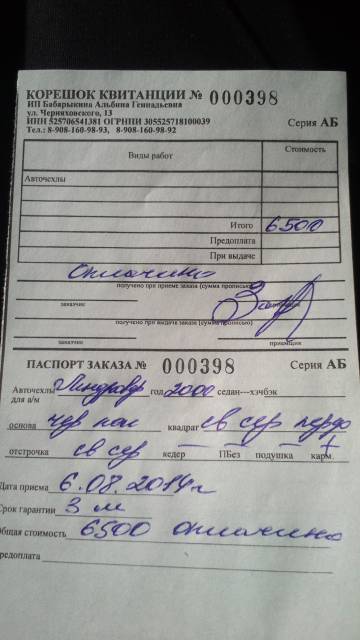 КОРЕШОК КВИТАНЦИИ № 000398
ИП Бабарыкина Альбина Геннадьевна
ул. Черняховского, 13
ИНН 525706541381 ОГРНИП 305525718100039
Тел.: 8-908-160-98-93, 8-908-160-98-92 Серия АБ
Виды работ Стоимость
Авточехлы
Итого 6500
Предоплата
При выдаче
Оплачино
получено при приеме заказа (сумма прописью)
заказчик
получено при выдаче заказа (сумма прописью)
заказчик приемщик
ПАСПОРТ ЗАКАЗА № 000398 Серия АБ
Авточехлы год 2000 седан---хэчбэк
для а/м
основа чер квадрат св сер
отстрочка св сер кедер ПБез подушка карм.
Дата приема 6.08.2014г
Срок гарантии 3 м
Общая стоимость 6500 оплачино
предоплата